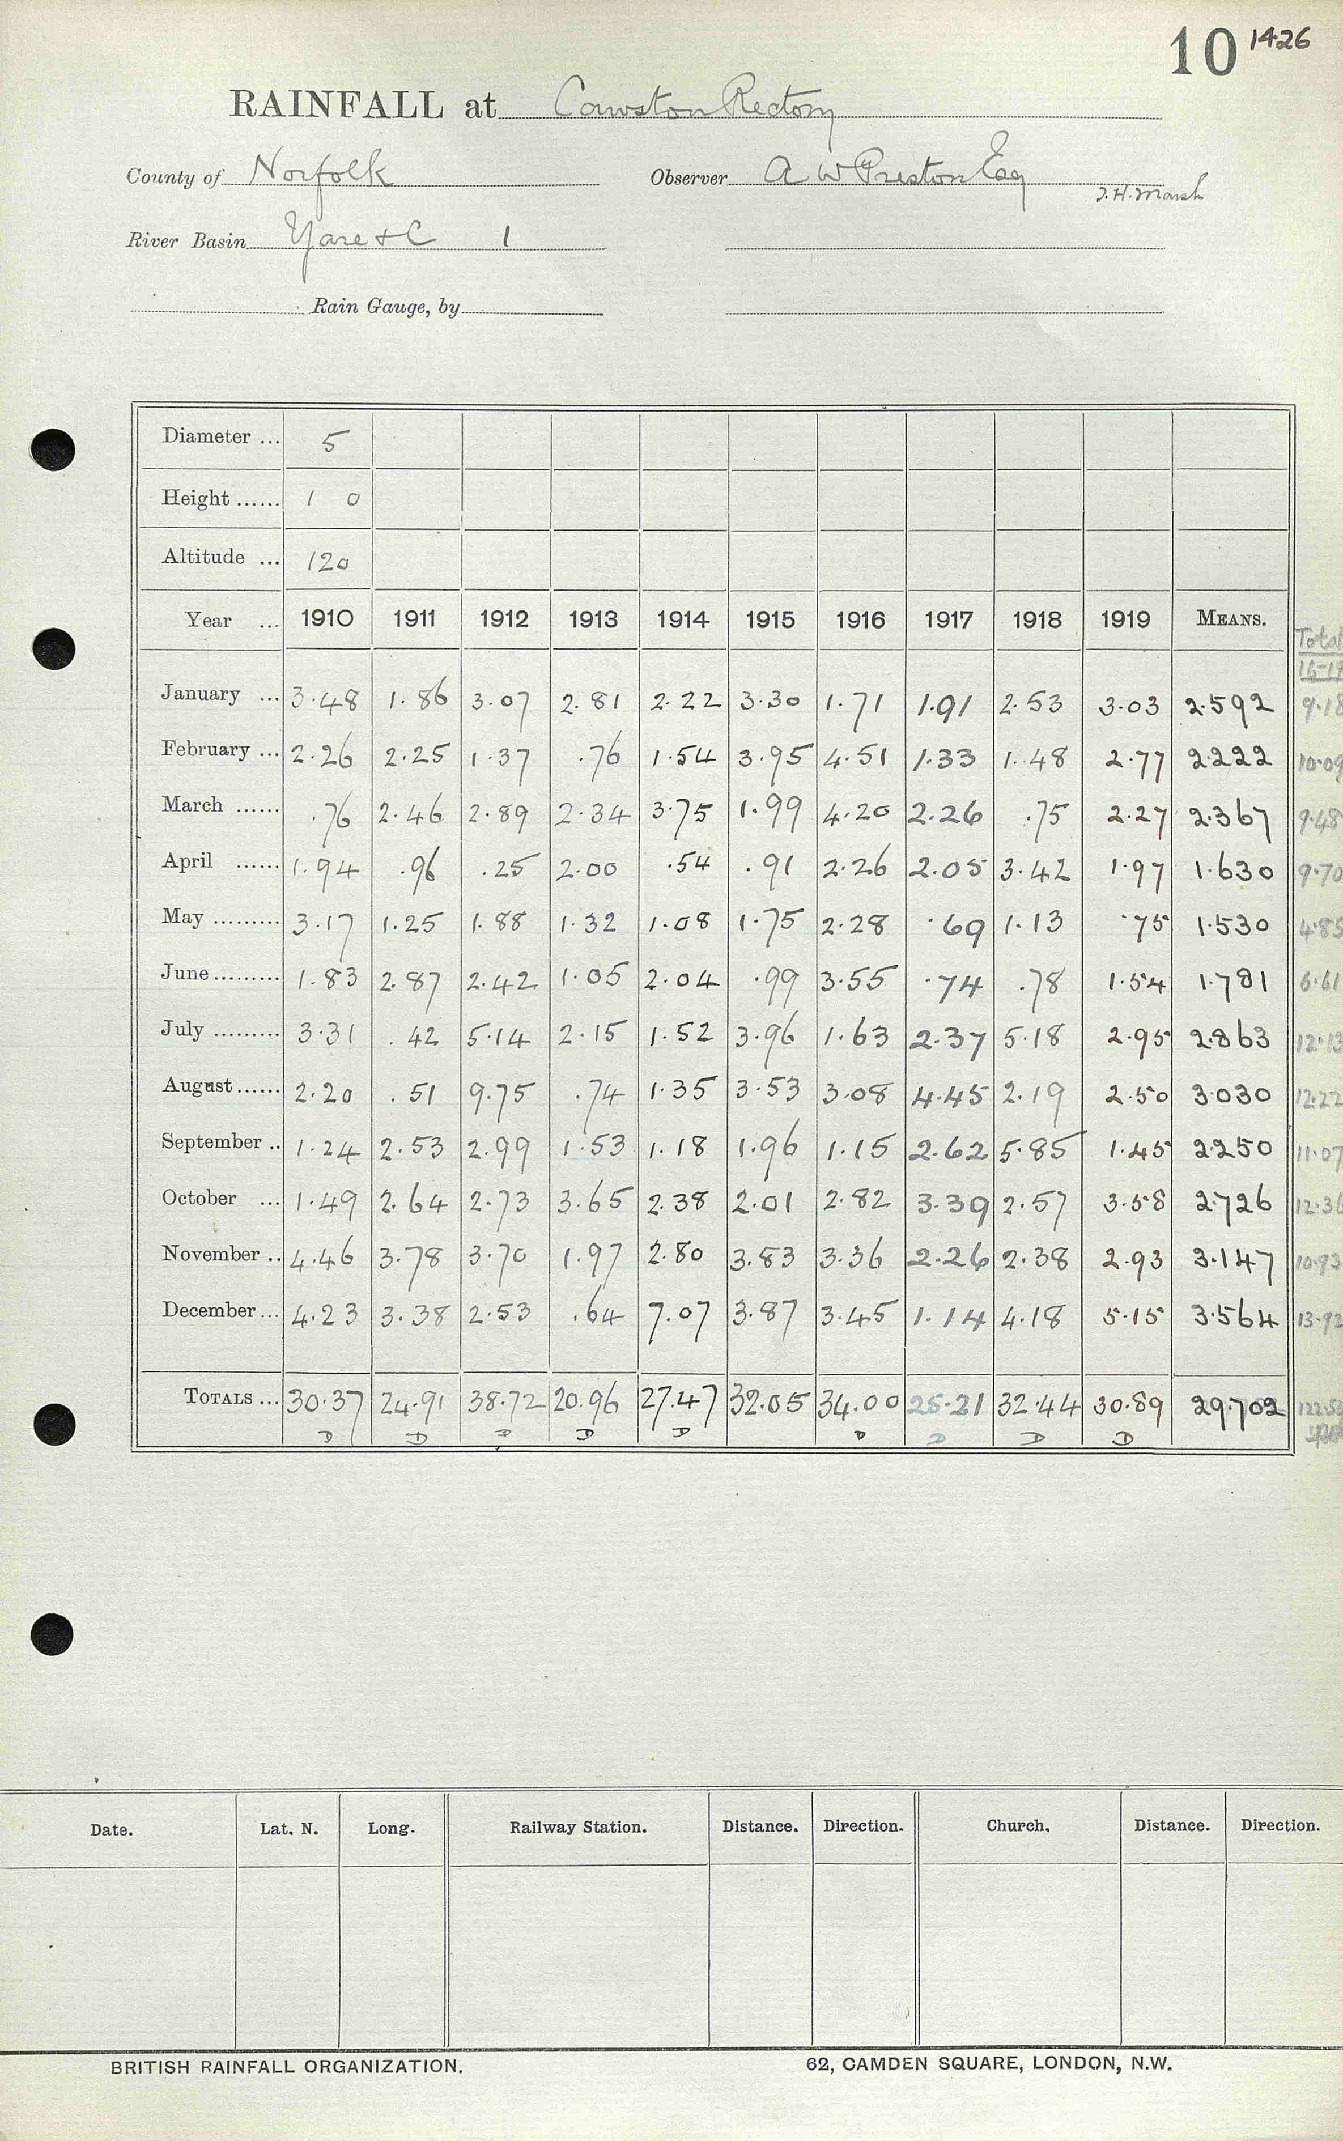 10 1426
RAINFALL at Cawston Rectory
County of Norfolk Observer A W Preston Esq
J.H. Marsh
River Basin Yare + C 1
Rain Gauge, by
Diameter ... 5
Height ...... 1 0
Altitude ... 120
Year ... 1910 1911 1912 1913 1914 1915 1916 1917 1918 1919 MEANS. Total
16-19
January ... 3.48 1.86 3.07 2.81 2.22 3.30 1.71 1.91 2.53 3.03 2.592 9.18
February ... 2.26 2.25 1.37 .76 1.54 3.95 4.51 1.33 1.48 2.77 2.222 10.09
March ...... .76 2.46 2.89 2.34 3.75 1.99 4.20 2.26 .75 2.27 2.367 9.48
April ...... 1.94 .96 .25 2.00 .54 .91 2.26 2.05 3.42 1.97 1.630 9.70
May ......... 3.17 1.25 1.88 1.32 1.08 1.75 2.28 .69 1.13 .75 1.530 4.85
June ......... 1.83 2.87 2.42 1.05 2.04 .99 3.55 .74 .78 1.54 1.781 6.61
July ......... 3.31 .42 5.14 2.15 1.52 3.96 1.63 2.37 5.18 2.95 2.863 12.13
August...... 2.20 .51 9.75 .74 1.35 3.53 3.08 4.45 2.19 2.50 3.030 12.22
September .. 1.24 2.53 2.99 1.53 1.18 1.96 1.15 2.62 5.85 1.45 2.250 11.07
October ... 1.49 2.64 2.73 3.65 2.38 2.01 2.82 3.39 2.57 3.58 2.726 12.36
November .. 4.46 3.78 3.70 1.97 2.80 3.83 3.36 2.26 2.38 2.93 3.147 10.93
December ... 4.23 3.38 2.53 .64 7.07 3.87 3.45 1.14 4.18 5.15 3.564 13.92
TOTALS ... 30.37 24.91 38.72 20.96 27.47 32.05 34.00 25.21 32.44 30.89 29.702
D D D D D D D D D
Date. Lat. N. Long. Railway Station. Distance. Direction. Church. Distance. Direction.
BRITISH RAINFALL ORGANIZATION. 62, CAMDEN SQUARE, LONDON, N.W.